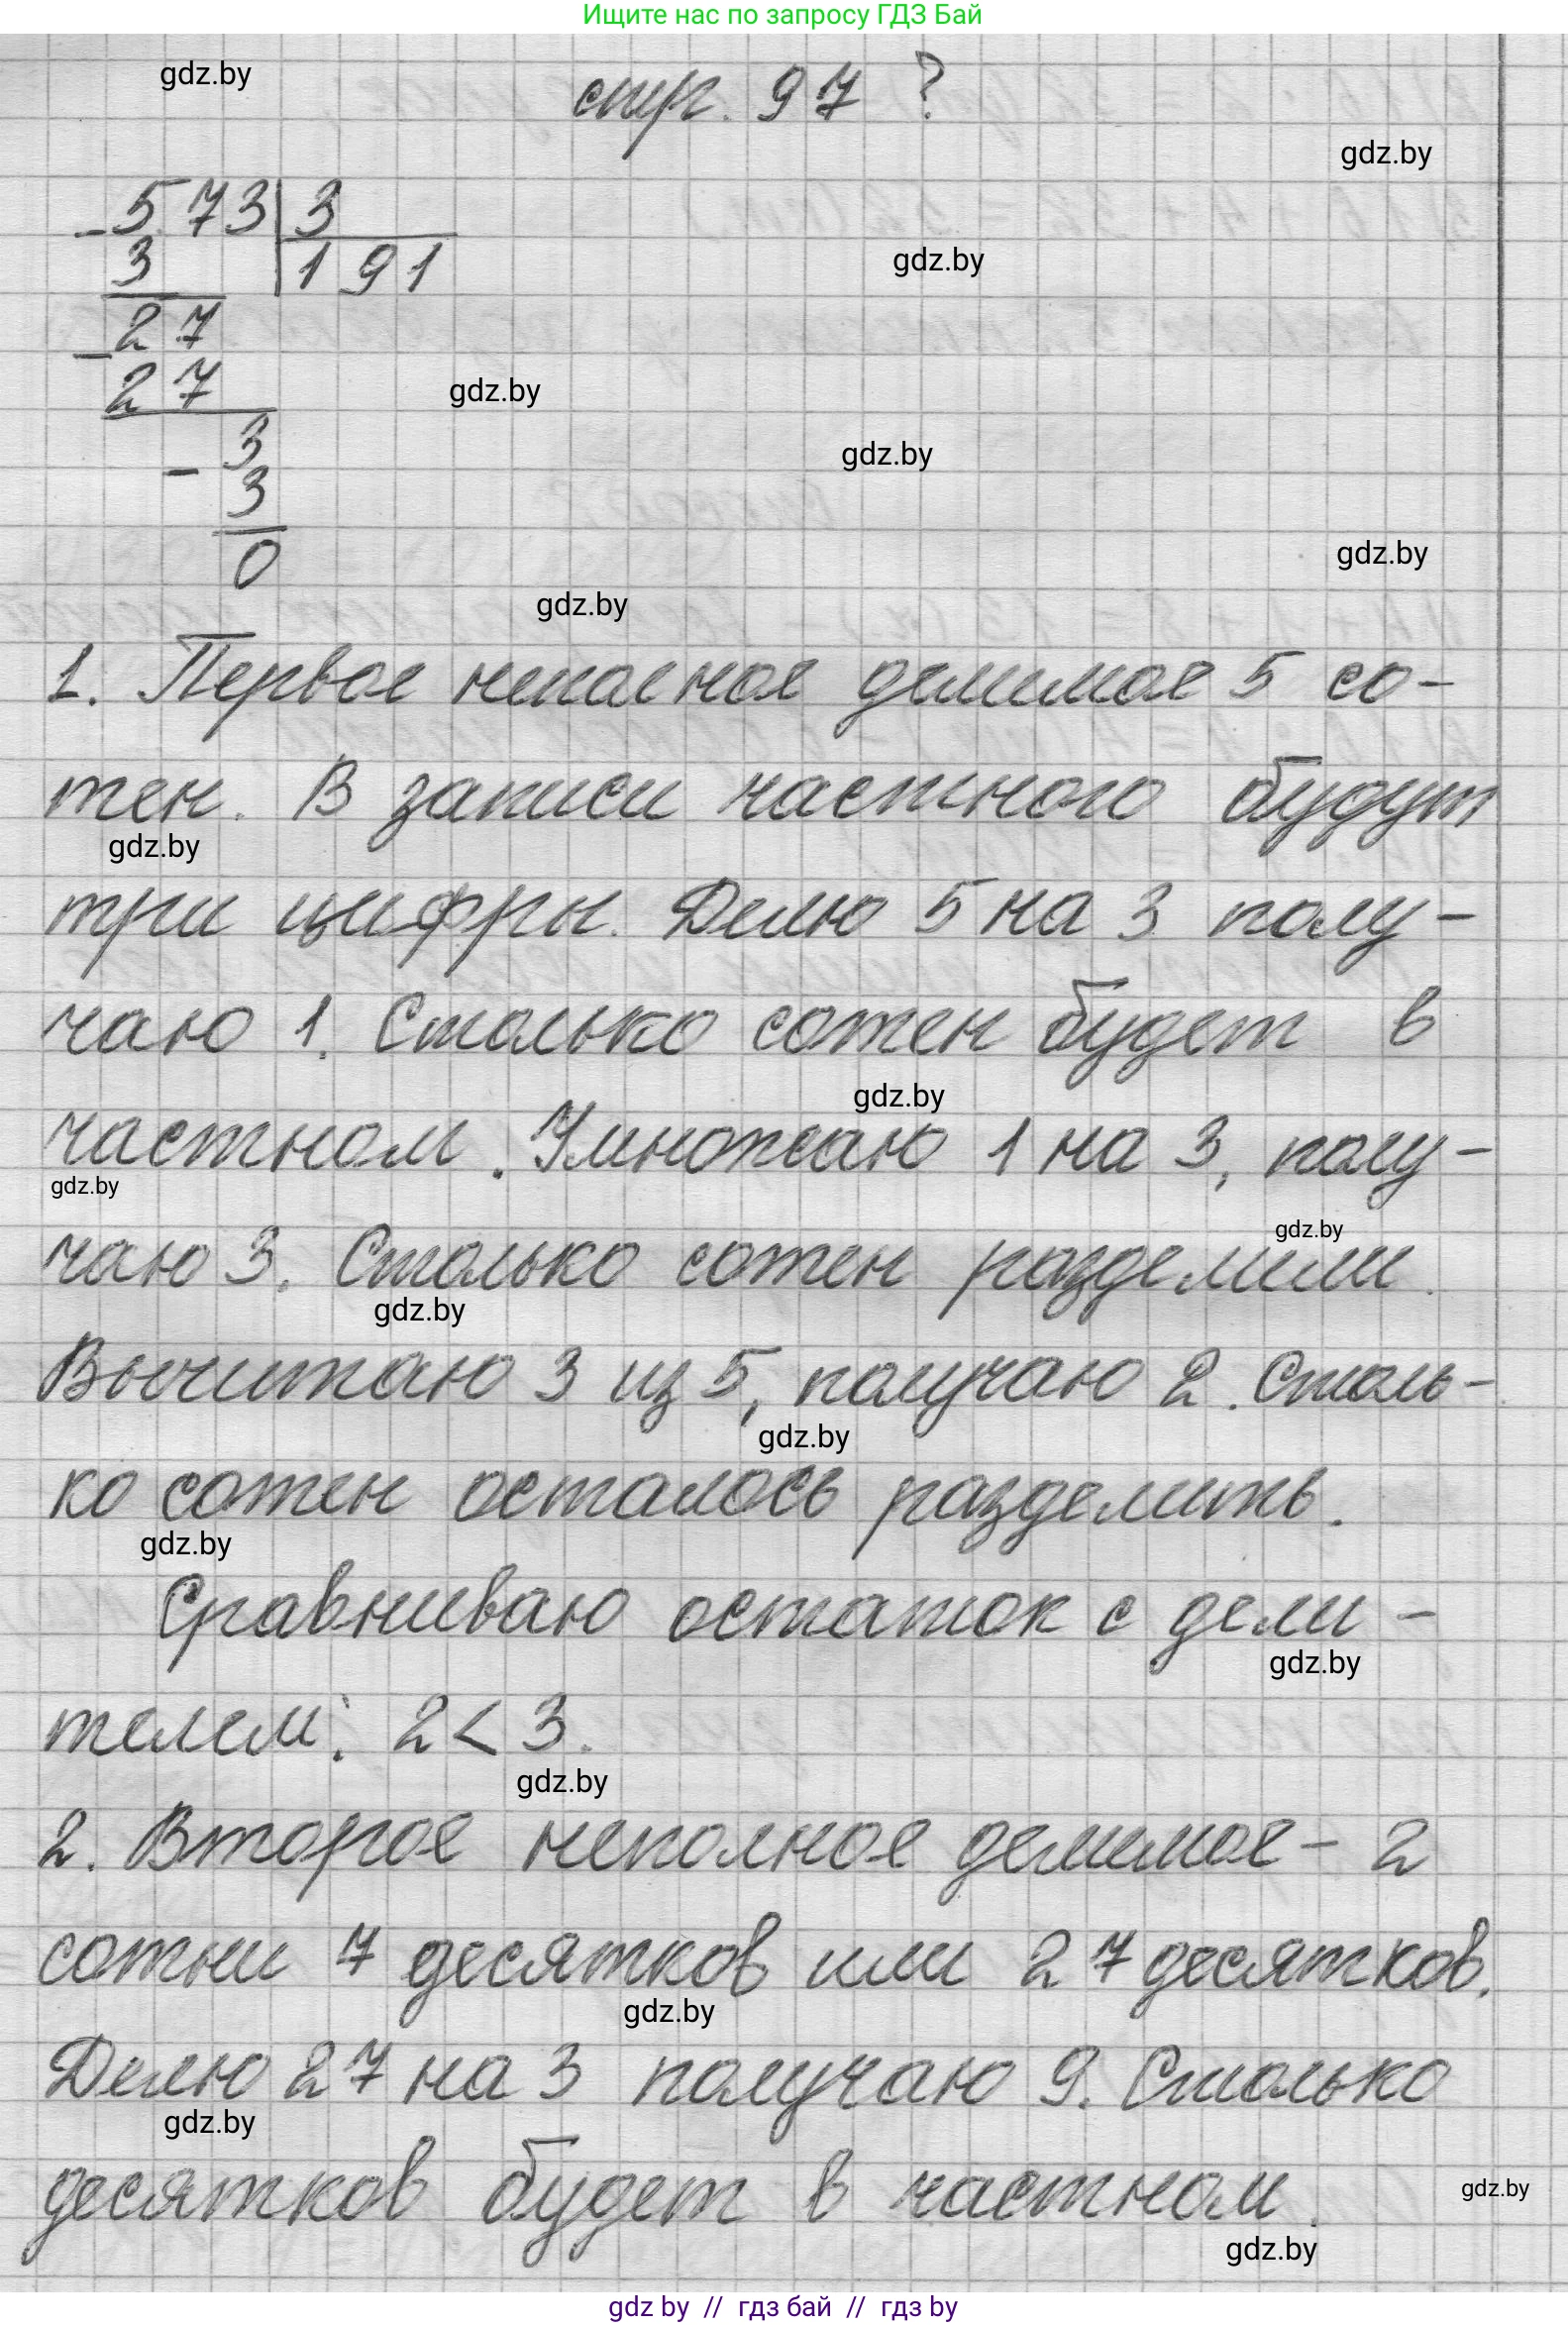 Ищите нас по запросу ГДЗ Бай
gdz.by
стр. 97 ?
gdz.by
- 573 | 3
3 191
gdz.by
- 27
27
gdz.by
3
gdz.by
- 3
gdz.by
0
gdz.by
1. Первое неполное делимое 5 со-
тен. В записи частного будут
gdz.by
три цифры. Делю 5 на 3 полу-
чаю 1. Столько сотен будет в
gdz.by
частном. Умножаю 1 на 3, полу-
gdz.by
gdz.by
чаю 3. Столько сотен разделили.
gdz.by
Вычитаю 3 из 5, получаю 2. Столь-
gdz.by
ко сотен осталось разделить.
gdz.by
Сравниваю остаток с дели-
gdz.by
телем: 2 < 3.
gdz.by
2. Второе неполное делимое - 2
сотни 7 десятков или 27 десятков.
gdz.by
Делю 27 на 3 получаю 9. Столько
gdz.by
десятков будет в частном.
gdz.by
gdz.by
gdz by // гдз бай // гдз by